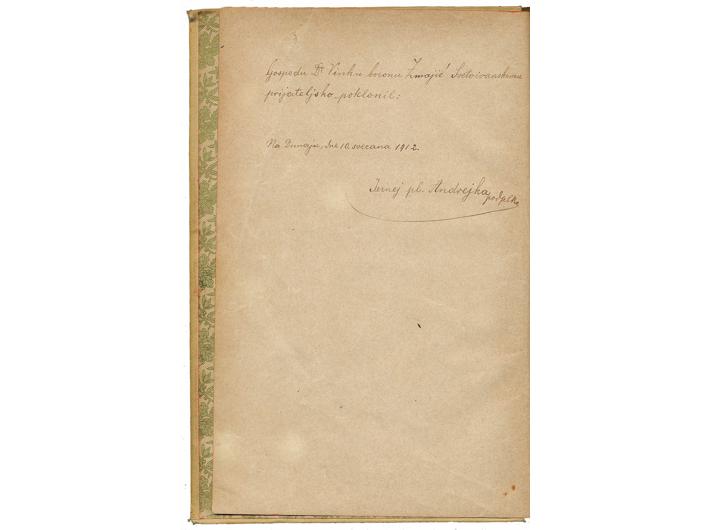 Gospodu Dr Vinku baronu Zmajić Svetoivanskemu
prijateljsko poklonil:
Na Dunaju, dne 10. svečana 1912.
Jernej pl. Andrejka
podplk.